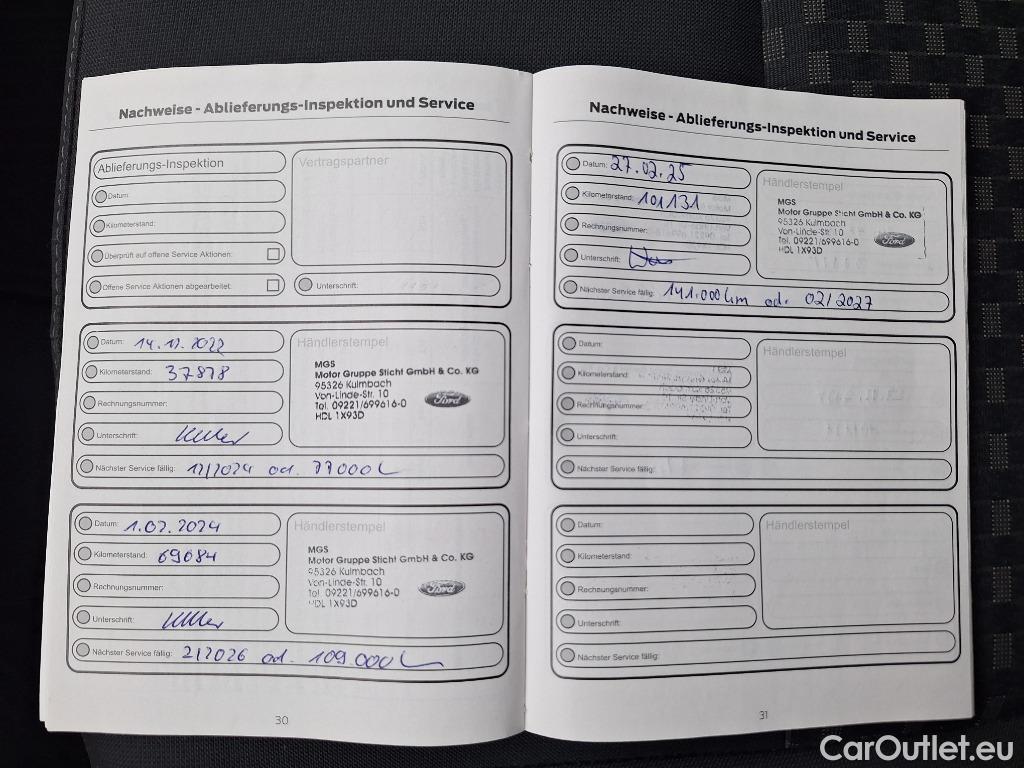 Nachweise - Ablieferungs-Inspektion und Service
Ablieferungs-Inspektion
Vertragspartner
Datum:
Kilometerstand:
Überprüft auf offene Service Aktionen:
Offene Service Aktionen abgearbeitet:
Unterschrift:
Datum: 14.12.2022
Kilometerstand: 37878
Rechnungsnummer:
Unterschrift:
Nächster Service fällig: 12/2024 od. 77000
Händlerstempel
MGS
Motor Gruppe Sticht GmbH & Co. KG
95326 Kulmbach
Von-Linde-Str. 10
Tel. 09221/699616-0
HDL 1X93D
Ford
Datum: 1.02.2024
Kilometerstand: 69084
Rechnungsnummer:
Unterschrift:
Nächster Service fällig: 2/2026 od. 109.000
Händlerstempel
MGS
Motor Gruppe Sticht GmbH & Co. KG
95326 Kulmbach
Von-Linde-Str. 10
Tel. 09221/699616-0
HDL 1X93D
Ford
30
Nachweise - Ablieferungs-Inspektion und Service
Datum: 27.02.25
Kilometerstand: 101131
Rechnungsnummer:
Unterschrift:
Nächster Service fällig: 141.000 km od. 02/2027
Händlerstempel
MGS
Motor Gruppe Sticht GmbH & Co. KG
95326 Kulmbach
Von-Linde-Str. 10
Tel. 09221/699616-0
HDL 1X93D
Ford
Datum:
Kilometerstand:
Rechnungsnummer:
Unterschrift:
Nächster Service fällig:
Händlerstempel
Datum:
Kilometerstand:
Rechnungsnummer:
Unterschrift:
Nächster Service fällig:
Händlerstempel
31
CarOutlet.eu